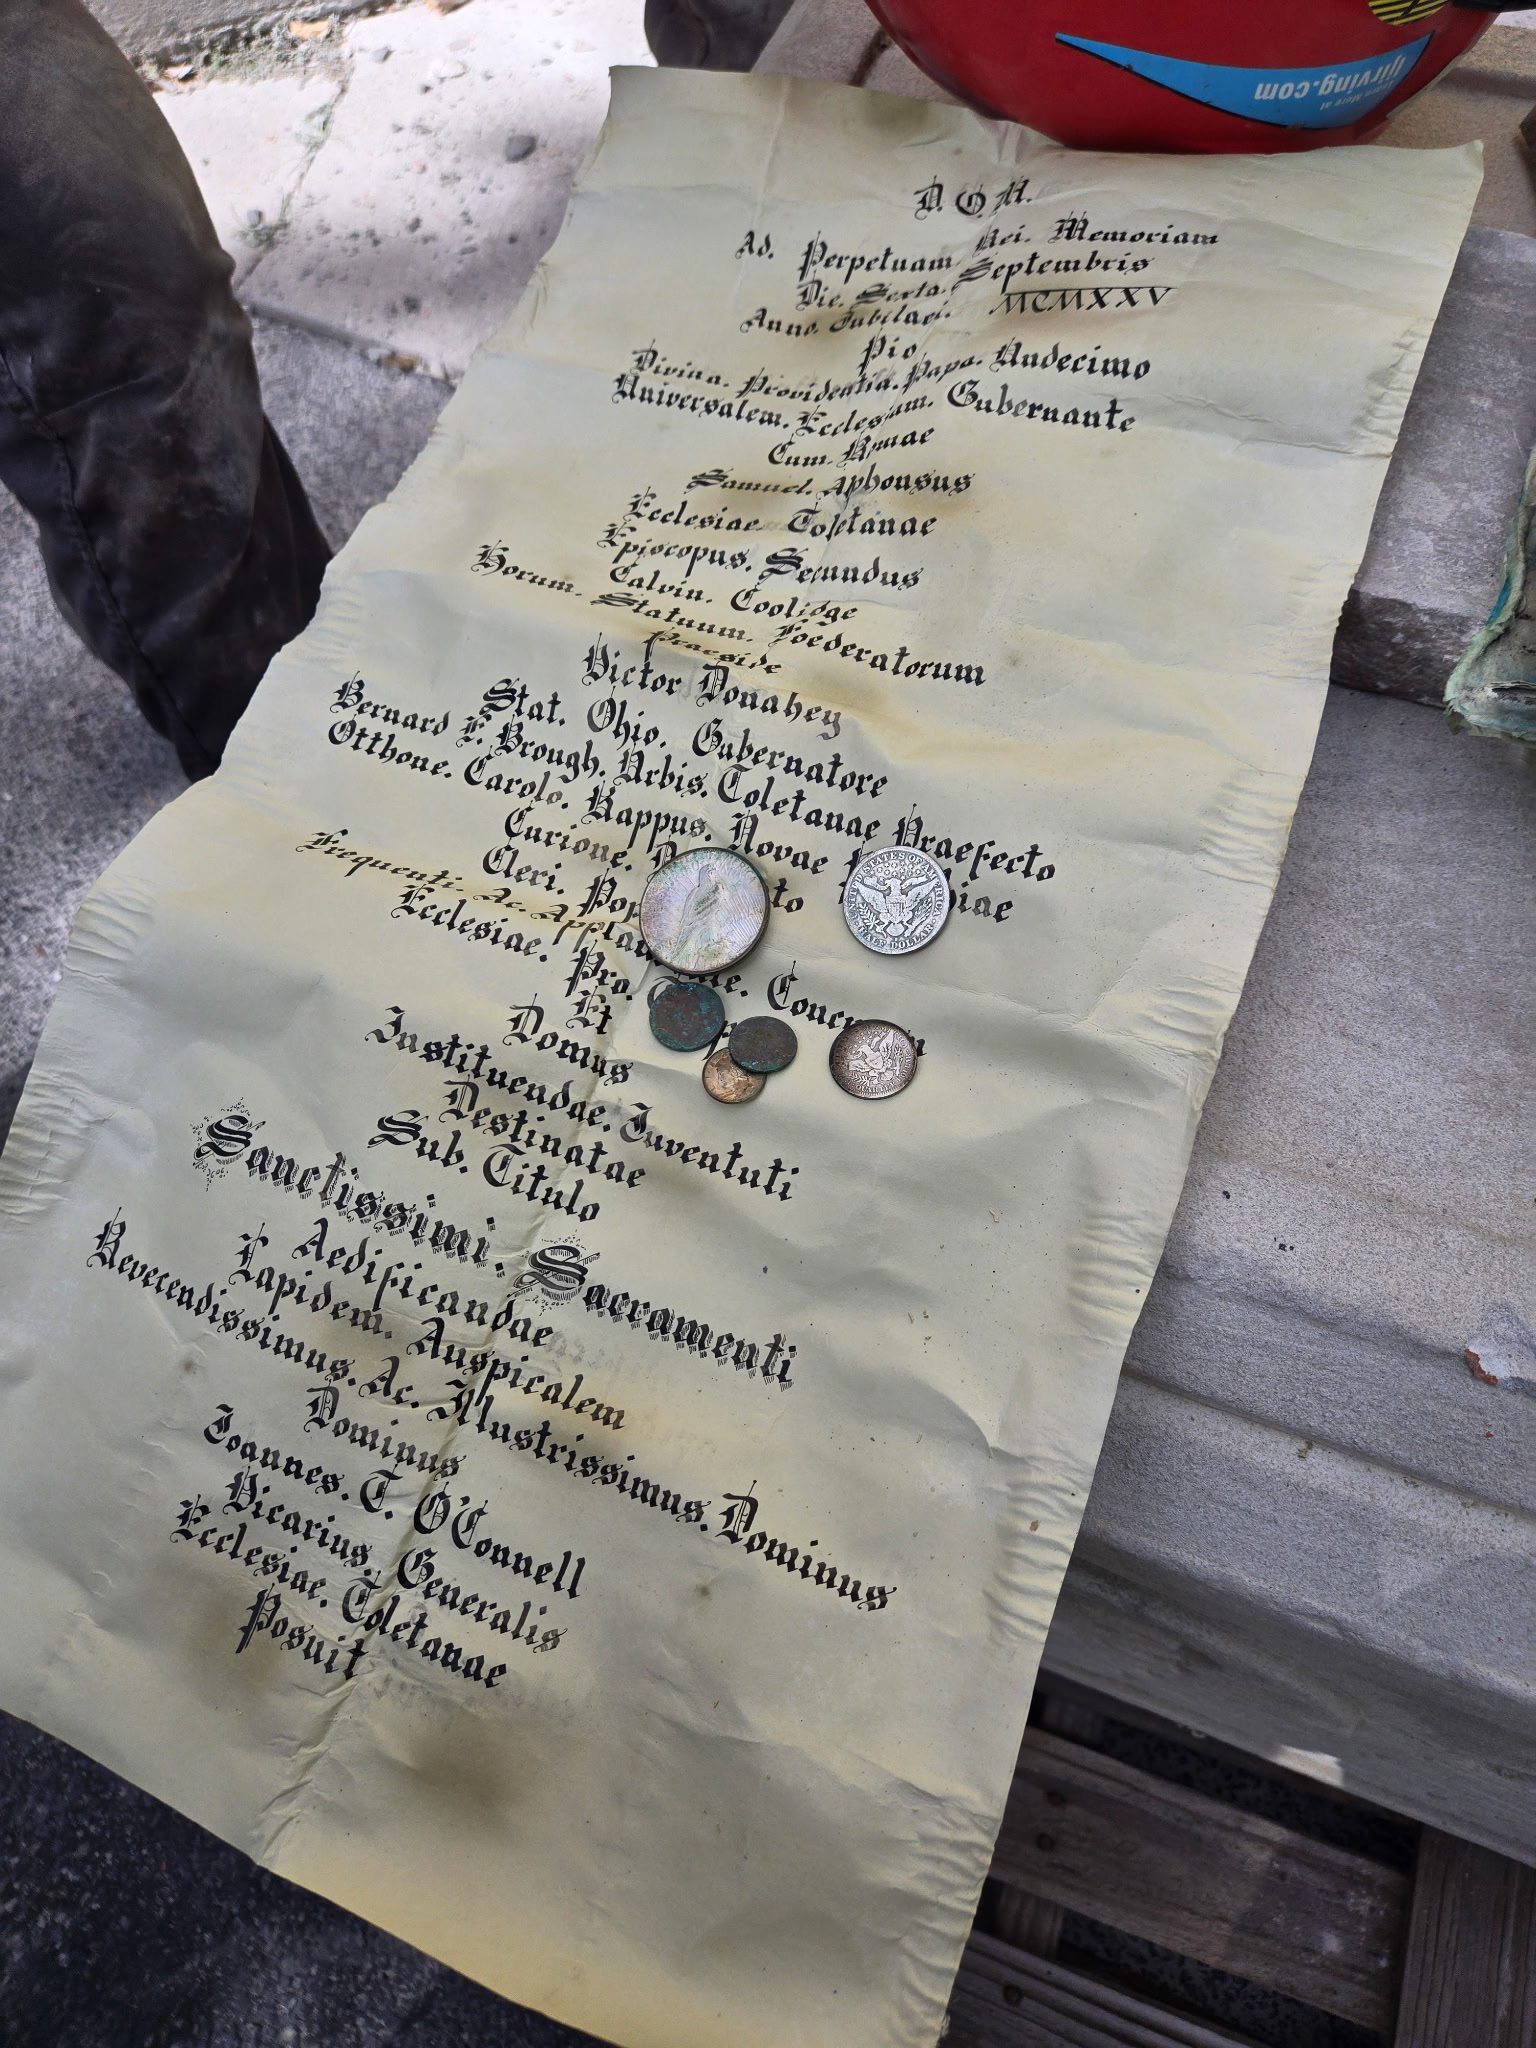 Learn More at
ljirving.com
D. O. M.
Ad. Perpetuam Rei. Memoriam
Die. Sexta. Septembris
Anno. Iubilaei. MCMXXV
Pio
Divina. Providentia. Papa. Undecimo
Universalem. Ecclesiam. Gubernante
Cum. Romae
Samuel. Aphonsus
Ecclesiae Toletanae
Episcopus. Secundus
Calvin. Coolidge
Horum. Statuum. Foederatorum
Praeside
Victor Donahey
Stat. Ohio. Gubernatore
Bernard F. Brough. Urbis. Toletanae Praefecto
Otthone. Carolo. Kappus. Novae
Curione.
Cleri.
Frequenti. Ac.
Ecclesiae. Pro. Concursu
Et
Domus
Instituendae. Iuventuti
Destinatae
Sub. Titulo
Sanctissimi. Sacramenti
Aedificandae
Lapidem. Auspicalem
Reverendissimus. Ac. Illustrissimus. Dominus
Dominus
Ioannes. T. O'Connell
Vicarius. Generalis
Ecclesiae. Toletanae
Posuit
UNITED STATES OF AMERICA
HALF DOLLAR